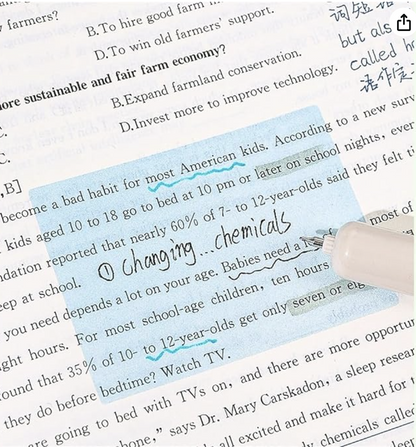 farmers?
B.To hire good farm
D.To win old farmers' support.
词短语
but als
called h
语作定
ore sustainable and fair farm economy?
B.Expand farmland conservation.
C.
D.Invest more to improve technology.
,B]
become a bad habit for most American kids. According to a new sur
kids aged 10 to 18 go to bed at 10 pm or later on school nights, ever
ndation reported that nearly 60% of 7- to 12-year-olds said they felt ti
eep at school.
① Changing...chemicals
you need depends a lot on your age. Babies need a most of
ght hours. For most school-age children, ten hours
ound that 35% of 10- to 12-year-olds get only seven or eig
they do before bedtime? Watch TV.
are going to bed with TVs on, and there are more opportun
hone," says Dr. Mary Carskadon, a sleep resea
all excited and make it hard for
chemicals calle